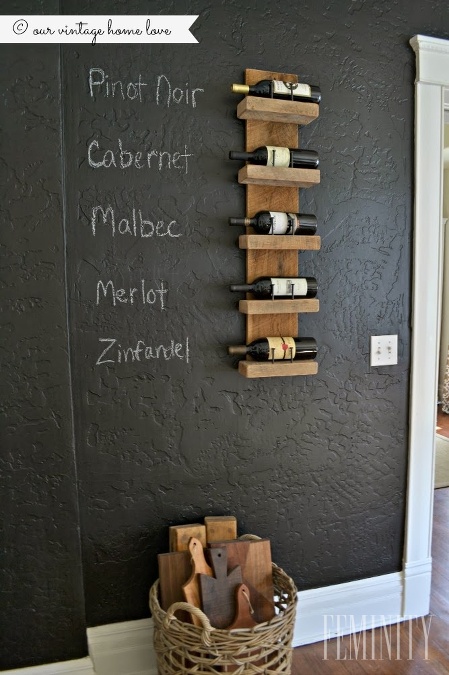 © our vintage home love
Pinot Noir
Cabernet
Malbec
Merlot
Zinfandel
FEMINITY